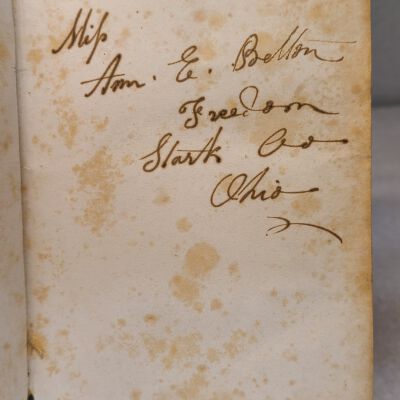 Miſs
Ann. E. Bellon
Freedom
Stark Co
Ohio